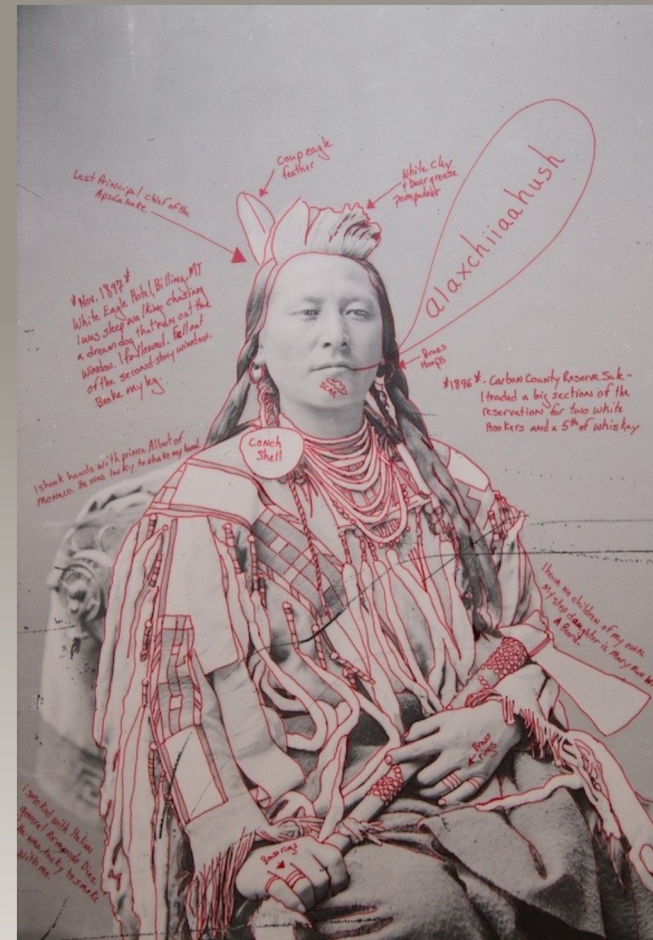 coup eagle
feather
White Clay
& bear grease
pompadour
Last Principal chief of the
Apsáalooke
alaxchiiaahush
*Nov. 1897*
White Eagle Hotel, Billings, MT
I was sleep walking chasing
a dream dog that ran out the
window. I followed. Fell out
of the second story window.
Broke my leg.
Brass
Hoops
SCAR
*1896* - Carbon County Reserve Sale -
I traded a big section of the
reservation for two white
Hookers and a 5th of whiskey
Conch
Shell
I shook hands with prince Albert of
Monaco. He was lucky to shake my hand.
I have no children of my own.
My step daughter is Mary
A Beard.
Brass
rings
I smoked with Italian
general Armando Diaz.
He was lucky to smoke
with me.